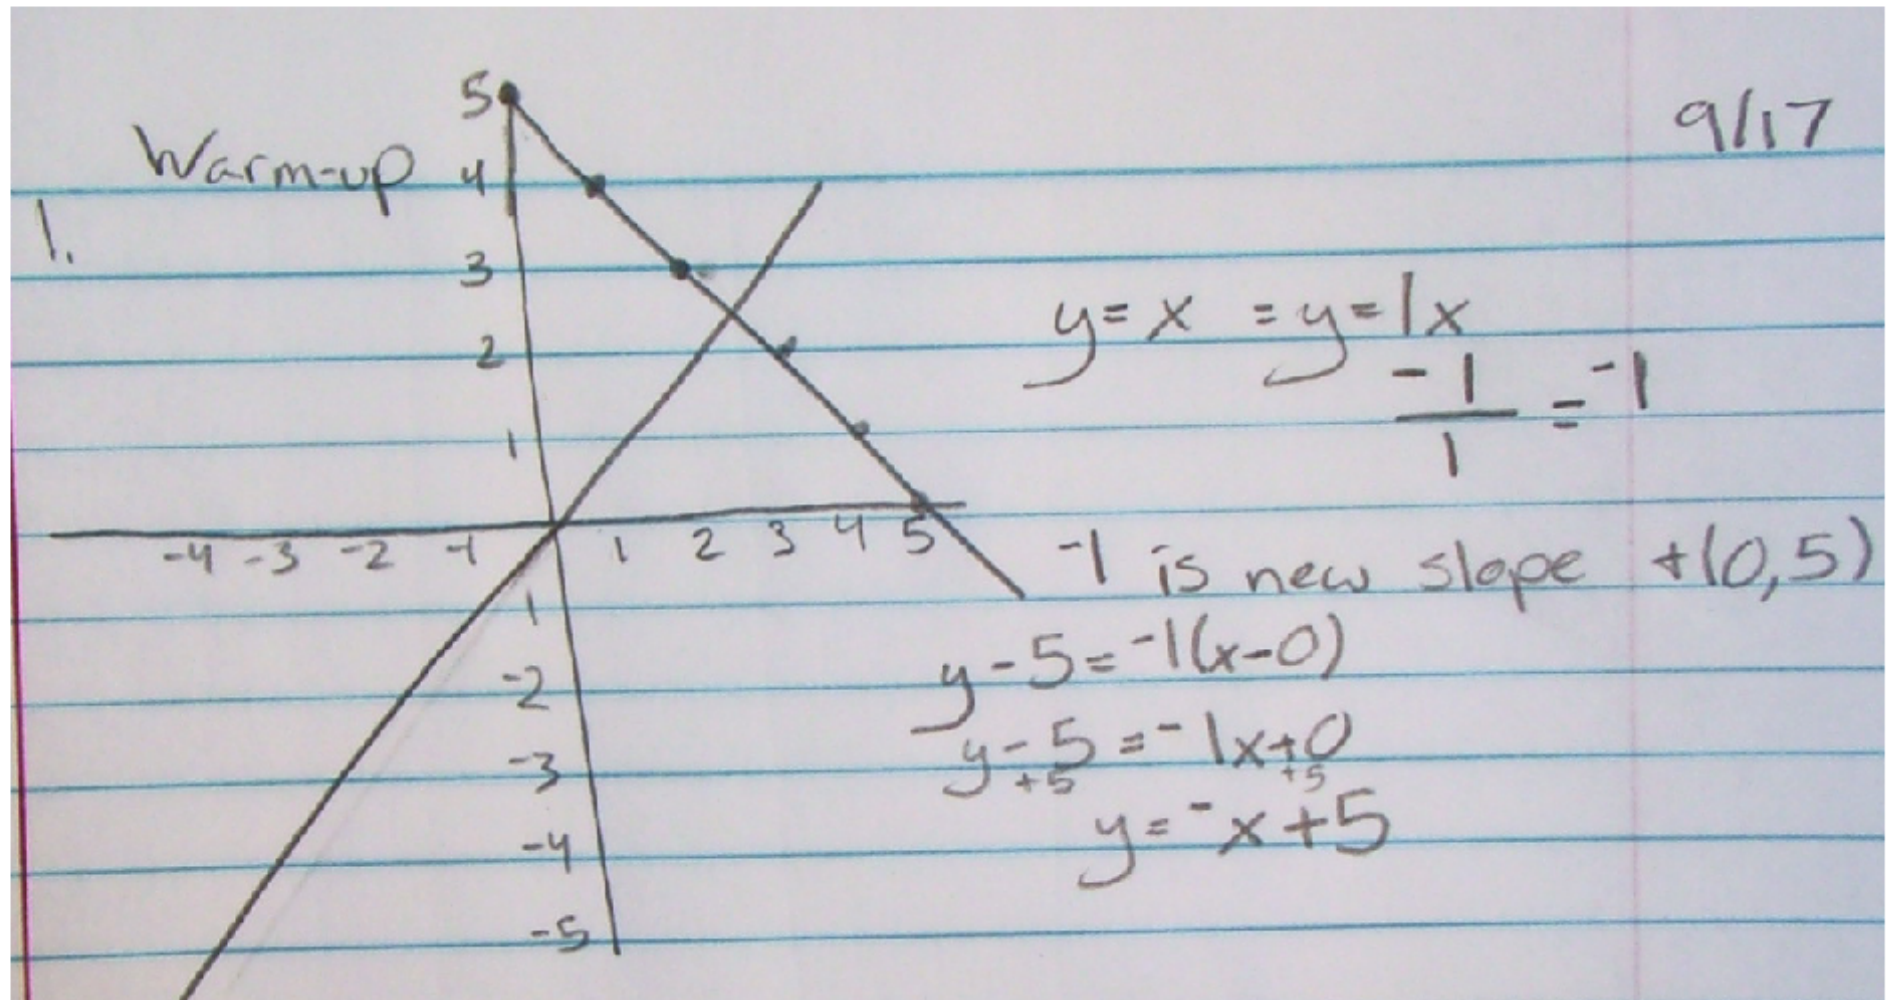 9/17
Warm-up
1.
5
4
3
2
1
-4 -3 -2 -1 1 2 3 4 5
1
-2
-3
-4
-5
y = x = y = 1x
-1/1 = -1
-1 is new slope +(0,5)
y - 5 = -1(x-0)
y - 5 = -1x+0
+5 +5
y = -x+5